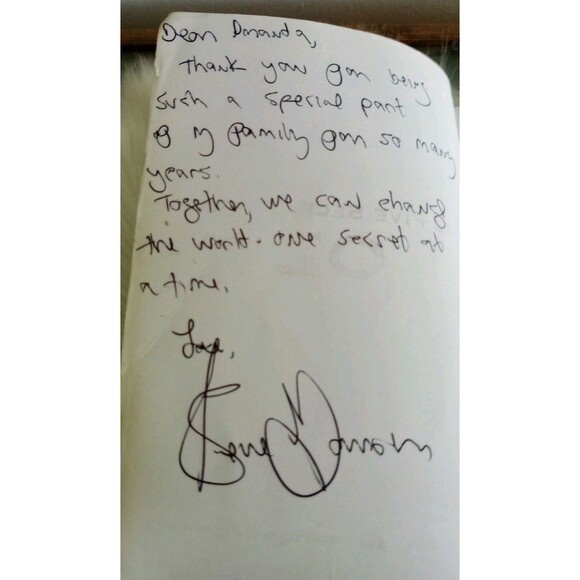 Dear Amanda,
Thank you for being
such a special part
of my family for so many
years.
Together, we can change
the world. one secret at
a time.
Love,